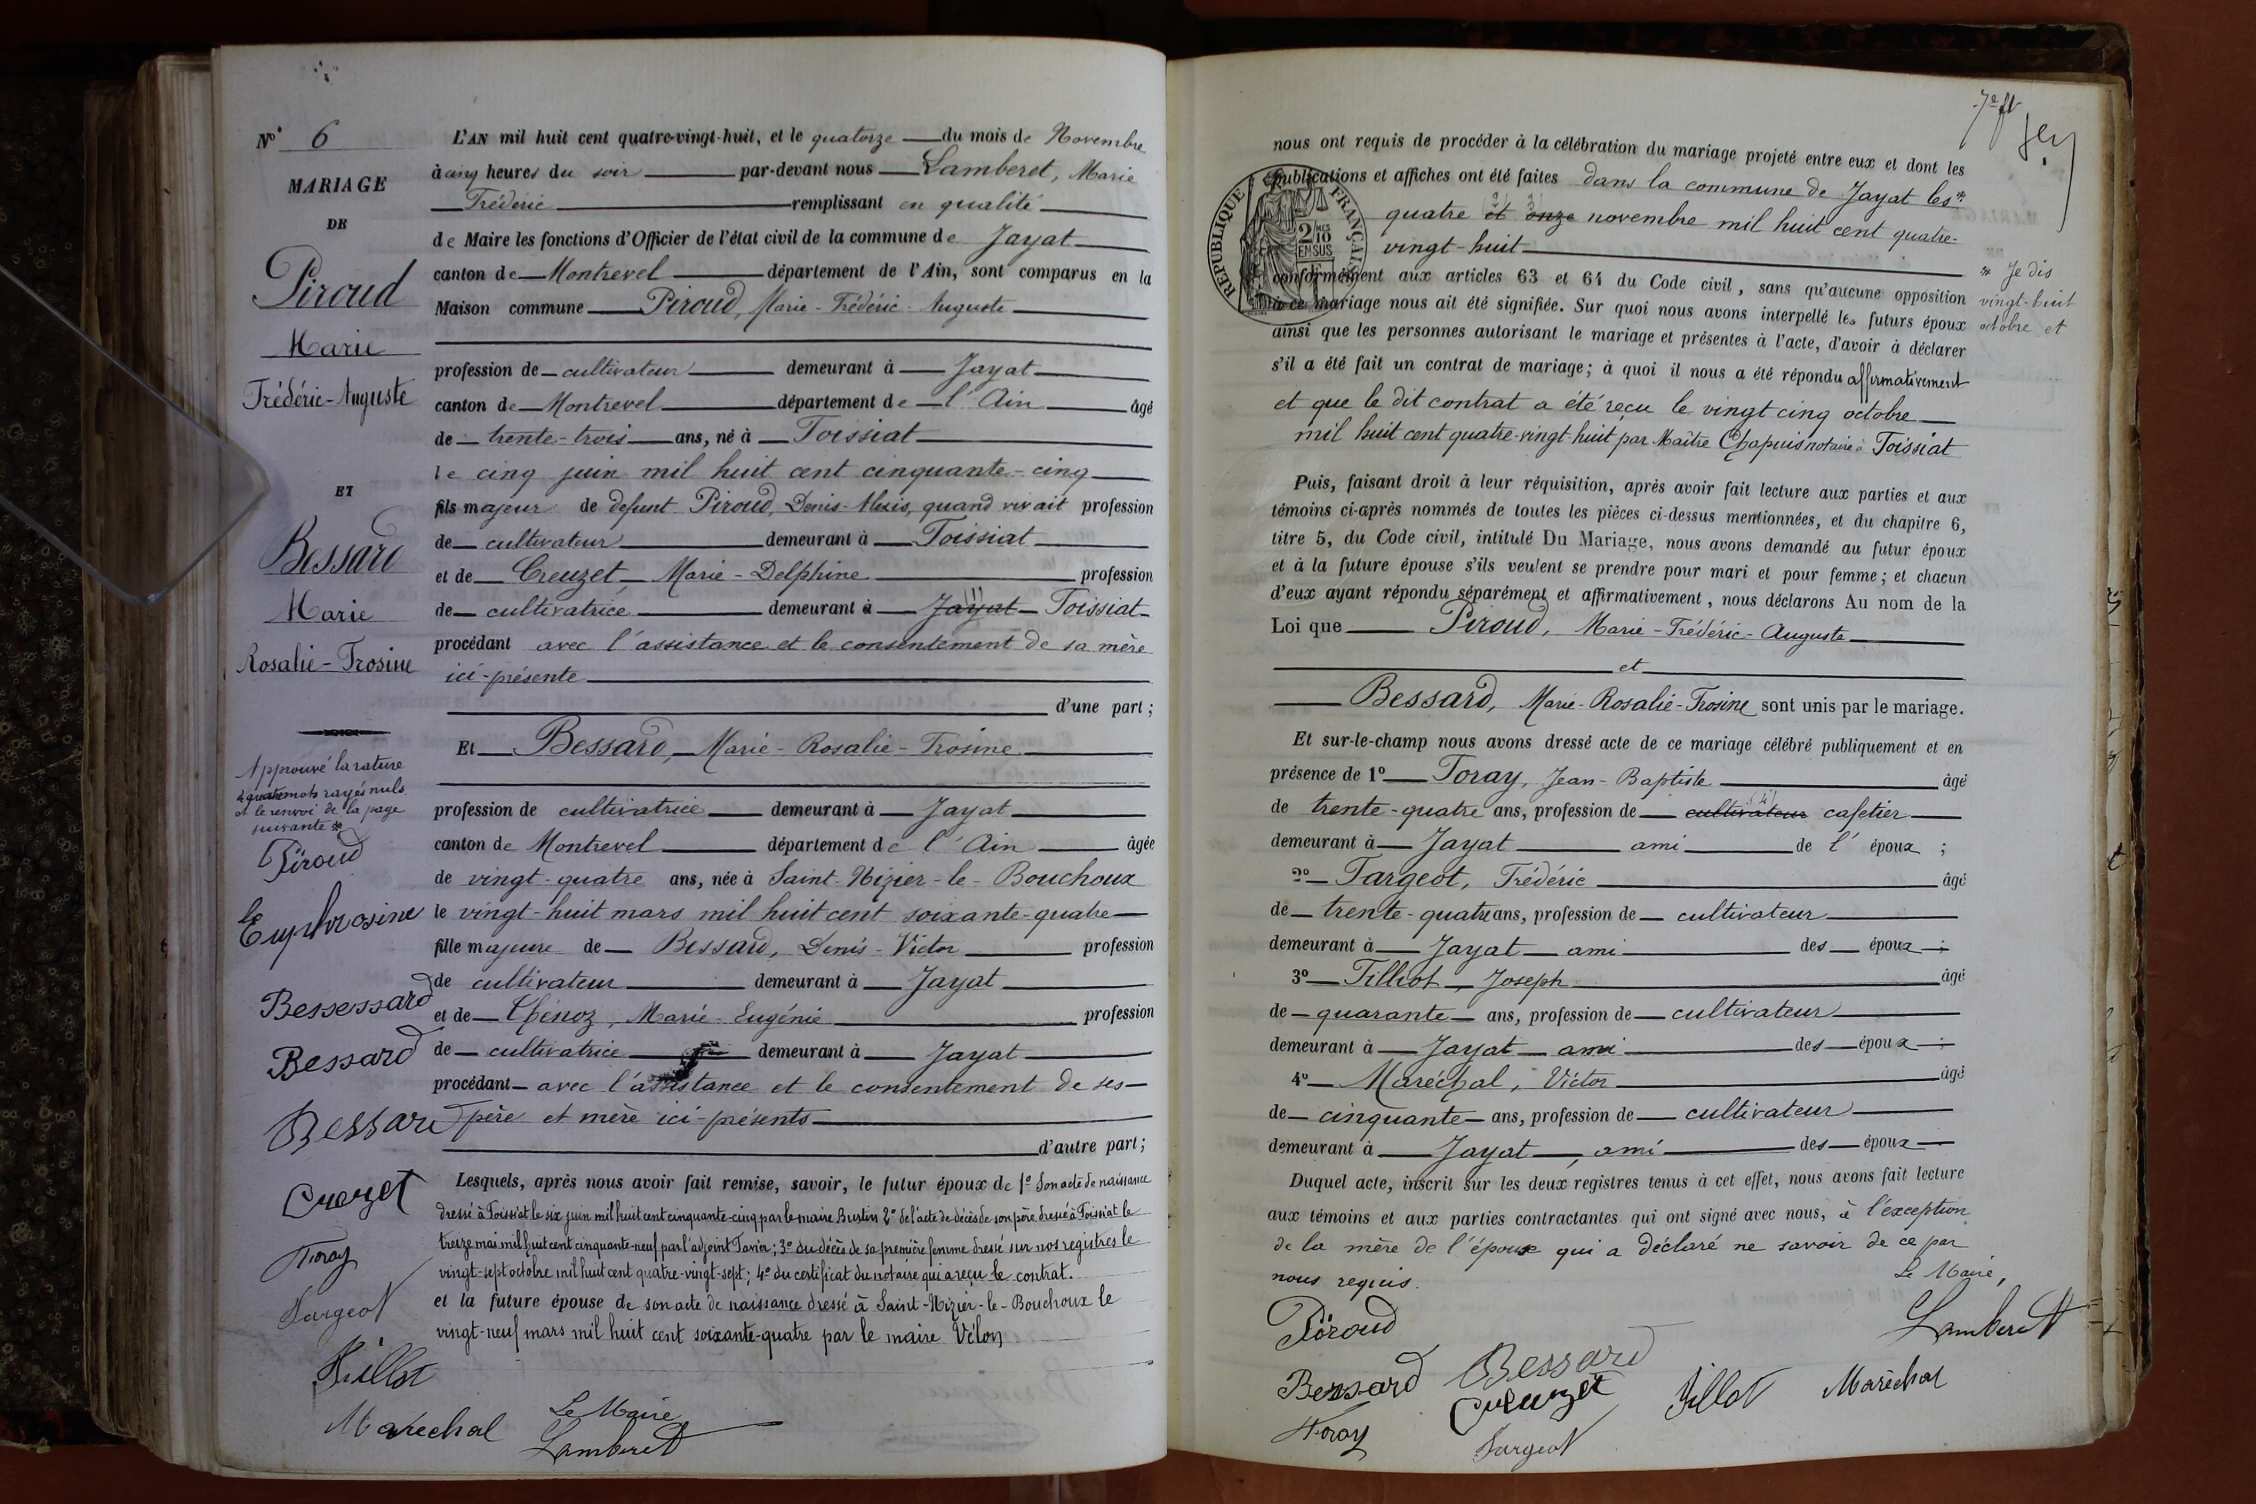 N° 6
MARIAGE
DE
Piroud
Marie
Frédéric-Auguste
ET
Bessard
Marie
Rosalie-Frosine
Approuvé la rature
de quatre mots rayés nuls
et le renvoi de la page
suivante *
Piroud
Euphrosine
Bessessard
Bessard
Bessard
Creuzet
Foray
Targeot
Tillot
Maréchal
Le Maire
Lamberet
L'AN mil huit cent quatre-vingt-huit, et le quatorze du mois de Novembre
à cinq heures du soir par-devant nous Lamberet, Marie
Frédéric remplissant en qualité
de Maire les fonctions d'Officier de l'état civil de la commune de Jayat
canton de Montrevel département de l'Ain, sont comparus en la
Maison commune Piroud, Marie-Frédéric-Auguste
profession de cultivateur demeurant à Jayat
canton de Montrevel département de l'Ain âgé
de trente-trois ans, né à Foissiat
le cinq juin mil huit cent cinquante-cinq
fils majeur de defunt Piroud, Denis-Alexis, quand vivait profession
de cultivateur demeurant à Foissiat
et de Creuzet Marie-Delphine profession
de cultivatrice demeurant à Jayat (1) Foissiat
procédant avec l'assistance et le consentement de sa mère
ici-présente
d'une part ;
Et Bessard, Marie-Rosalie-Frosine
profession de cultivatrice demeurant à Jayat
canton de Montrevel département de l'Ain âgée
de vingt-quatre ans, née à Saint-Nizier-le-Bouchoux
le vingt-huit mars mil huit cent soixante-quatre
fille majeure de Bessard, Denis-Victor profession
de cultivateur demeurant à Jayat
et de Thénoz, Marie-Eugénie profession
de cultivatrice demeurant à Jayat
procédant avec l'assistance et le consentement de ses
père et mère ici-présents
d'autre part ;
Lesquels, après nous avoir fait remise, savoir, le futur époux de 1° Son acte de naissance
dressé à Foissiat le six juin mil huit cent cinquante-cinq par le maire Burtin 2° de l'acte de décès de son père dressé à Foissiat le
treize mai mil huit cent cinquante-neuf par l'adjoint Tavier ; 3° du décès de sa première femme dressé sur nos registres le
vingt-sept octobre mil huit cent quatre-vingt-sept ; 4° du certificat du notaire qui a reçu le contrat.
et la future épouse de son acte de naissance dressé à Saint-Nizier-le-Bouchoux le
vingt-neuf mars mil huit cent soixante-quatre par le maire Vélon
7e ft
RÉPUBLIQUE FRANÇAISE
2 10
EN SUS
nous ont requis de procéder à la célébration du mariage projeté entre eux et dont les
publications et affiches ont été faites dans la commune de Jayat les *
quatre et onze novembre mil huit cent quatre-
vingt-huit
* Je dis
vingt-huit
octobre et
conformément aux articles 63 et 64 du Code civil, sans qu'aucune opposition
à ce mariage nous ait été signifiée. Sur quoi nous avons interpellé les futurs époux
ainsi que les personnes autorisant le mariage et présentes à l'acte, d'avoir à déclarer
s'il a été fait un contrat de mariage ; à quoi il nous a été répondu affirmativement
et que le dit contrat a été reçu le vingt cinq octobre
mil huit cent quatre-vingt-huit par Maître Chapuis notaire à Foissiat
Puis, faisant droit à leur réquisition, après avoir fait lecture aux parties et aux
témoins ci-après nommés de toutes les pièces ci-dessus mentionnées, et du chapitre 6,
titre 5, du Code civil, intitulé Du Mariage, nous avons demandé au futur époux
et à la future épouse s'ils veulent se prendre pour mari et pour femme ; et chacun
d'eux ayant répondu séparément et affirmativement, nous déclarons Au nom de la
Loi que Piroud, Marie-Frédéric-Auguste
et
Bessard, Marie-Rosalie-Frosine sont unis par le mariage.
Et sur-le-champ nous avons dressé acte de ce mariage célébré publiquement et en
présence de 1° Foray, Jean-Baptiste âgé
de trente-quatre ans, profession de cultivateur (4) cafetier
demeurant à Jayat ami de l'époux ;
2° Targeot, Frédéric âgé
de trente-quatre ans, profession de cultivateur
demeurant à Jayat ami des époux ;
3° Tillot, Joseph âgé
de quarante ans, profession de cultivateur
demeurant à Jayat ami des époux ;
4° Maréchal, Victor âgé
de cinquante ans, profession de cultivateur
demeurant à Jayat, ami des époux
Duquel acte, inscrit sur les deux registres tenus à cet effet, nous avons fait lecture
aux témoins et aux parties contractantes qui ont signé avec nous, à l'exception
de la mère de l'épouse qui a déclaré ne savoir de ce par
nous requis.
Le Maire,
Piroud
Lamberet
Bessard
Bessard
Creuzet
Tillot
Maréchal
Foray
Targeot